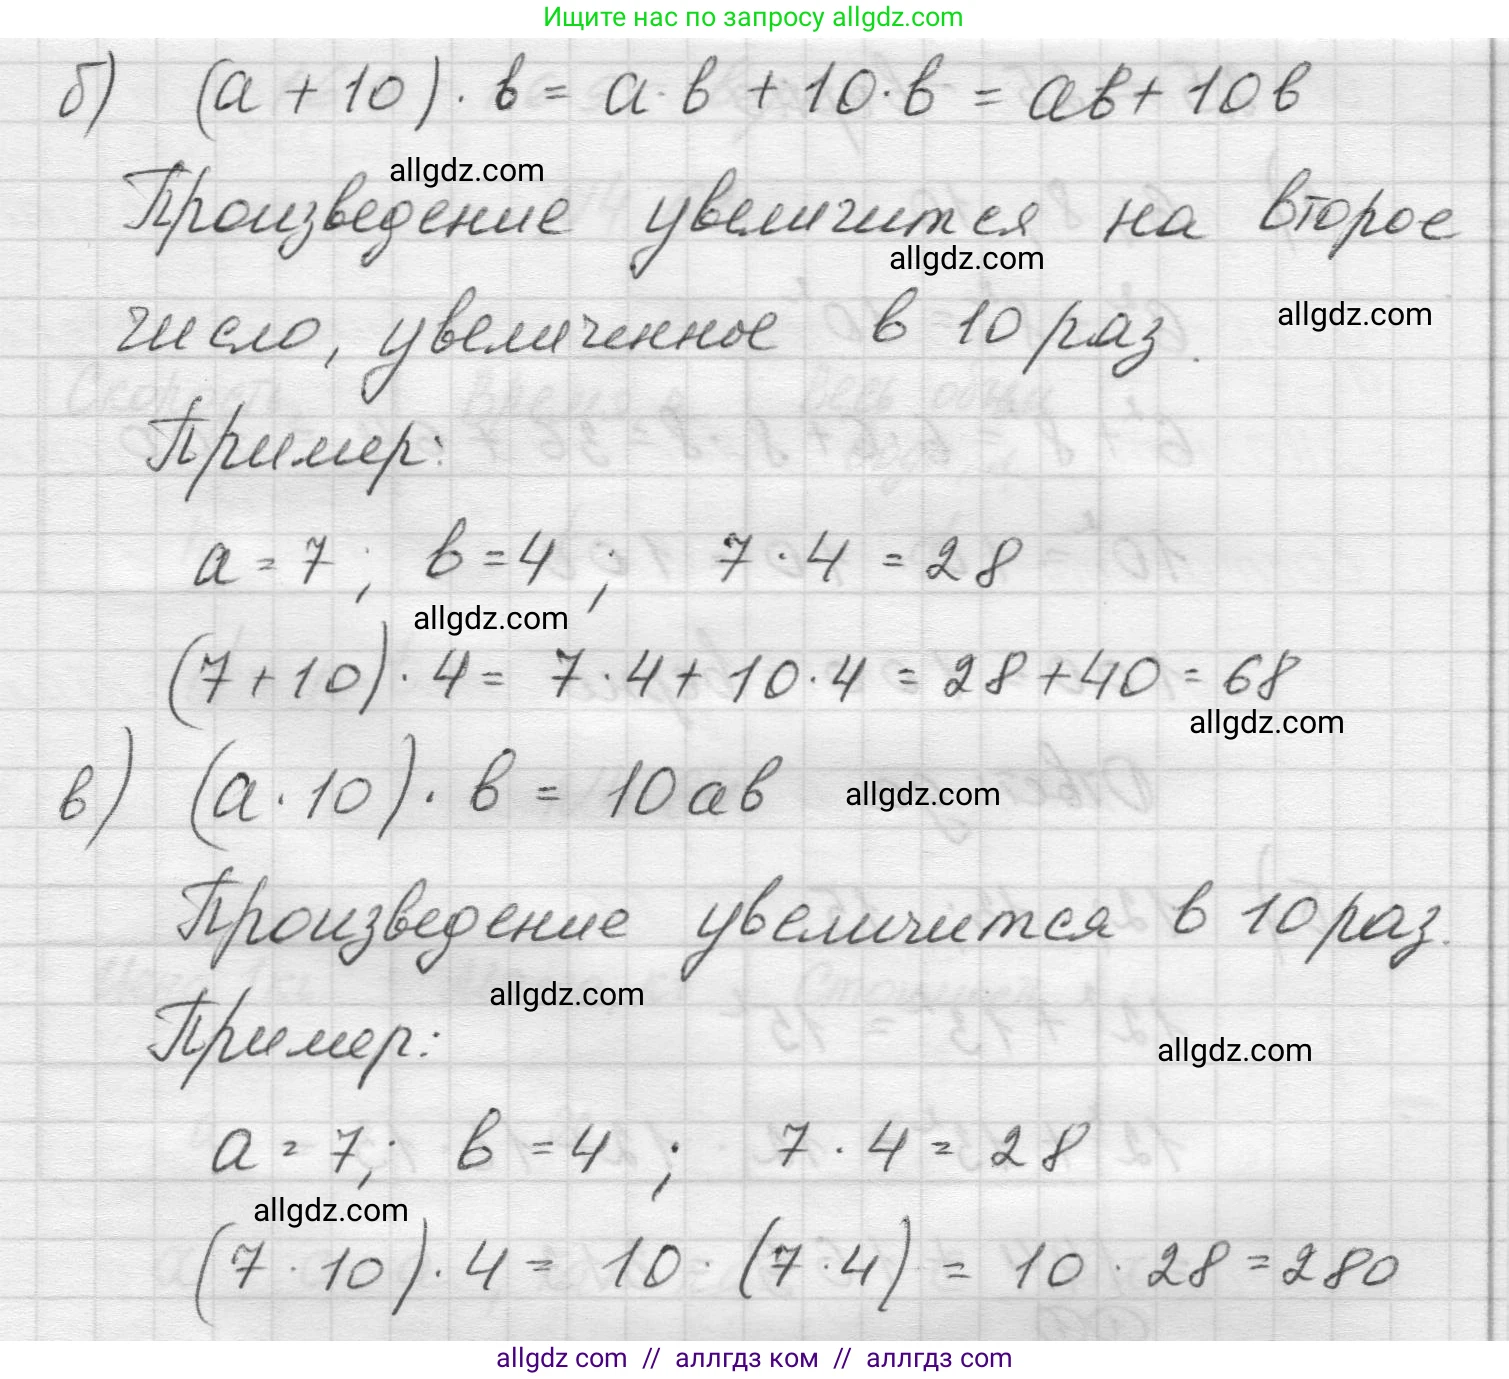 Ищите нас по запросу allgdz.com
б) (a + 10) · в = a · в + 10 · в = aв + 10в
allgdz.com
Произведение увеличится на второе
allgdz.com
число, увеличенное в 10 раз.
allgdz.com
Пример:
a = 7; в = 4; 7 · 4 = 28
allgdz.com
(7 + 10) · 4 = 7 · 4 + 10 · 4 = 28 + 40 = 68
allgdz.com
в) (a · 10) · в = 10aв
allgdz.com
Произведение увеличится в 10 раз.
allgdz.com
Пример:
allgdz.com
a = 7; в = 4; 7 · 4 = 28
allgdz.com
(7 · 10) · 4 = 10 · (7 · 4) = 10 · 28 = 280
allgdz com // аллгдз ком // allgdz com